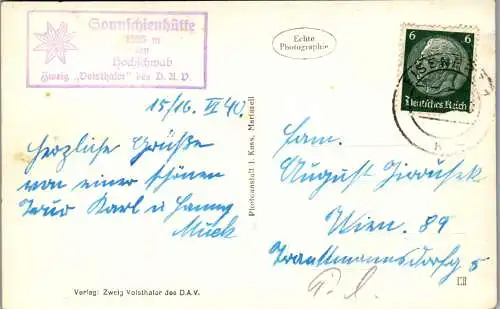 Sonnschienhütte
1525 m
am
Hochschwab
Zweig "Voisthaler" des D. A. V.
Echte
Photographie
6 6
Deutsches Reich
15/16. VI 40.
Herzliche Grüße
von einer schönen
Tour Karl u Hanny
Muck
Photoanstalt J. Kuss, Mariazell
Fam.
August
Wien. 89
Trauttmansdorfg 5
Verlag: Zweig Voisthaler des D.A.V.